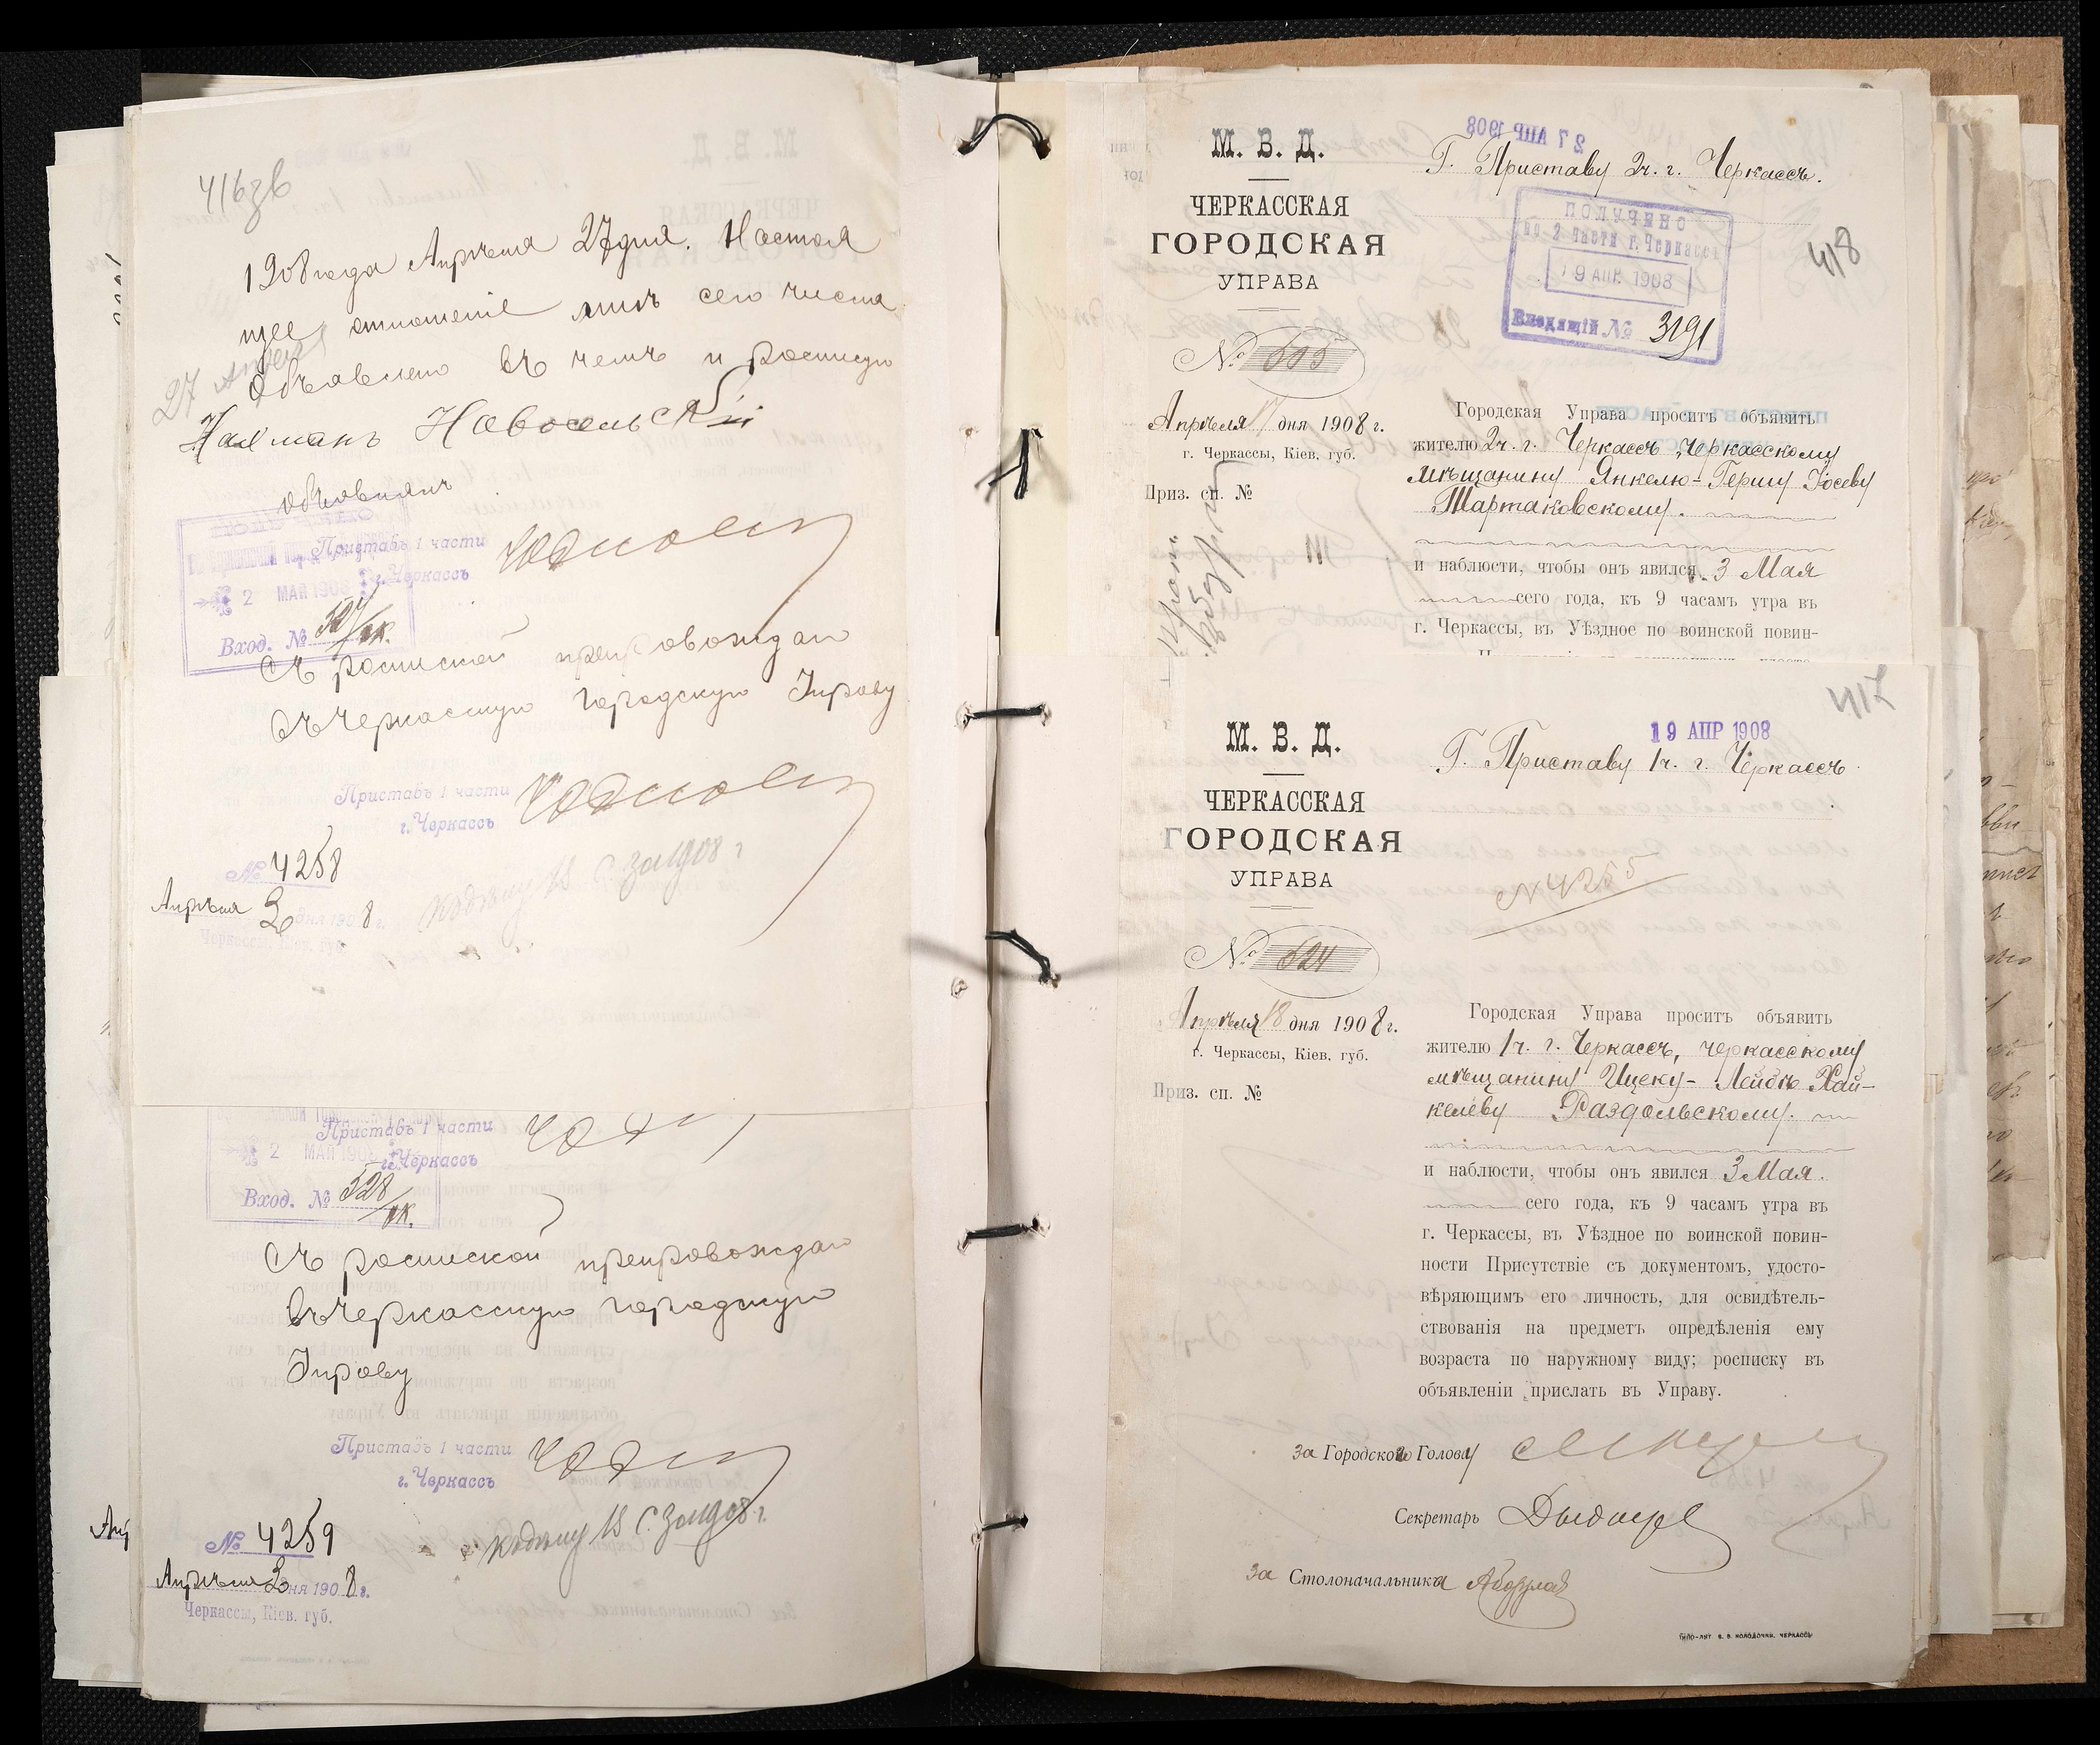 416зв
1908 года Апрѣля 27 дня. Настоя
щее отношеніе мнѣ сего числа
объявлено въ чемъ и росписуюсь
27 Апреля
Нахманъ Новосельскій
объявилъ
Приставъ 1 части
г. Черкассъ
2 МАЯ 1908
Вход. № 527/вк.
Съ роспиской препровождаю
Въ Черкасскую Городскую Управу
Приставъ 1 части
г. Черкассъ
№ 4258
Апрѣля 30 дня 1908 г.
Черкассы, Кіев. губ.
Приставъ 1 части
г. Черкассъ
2 МАЯ 190
Вход. № 528/вк.
Съ роспиской препровождаю
въ Черкасскую городскую
Управу
Приставъ 1 части
г. Черкассъ
№ 4259
Апрѣля 30 дня 1908 г.
Черкассы, Кіев. губ.
27 АПР 1908
М. В. Д.
ЧЕРКАССКАЯ
ГОРОДСКАЯ
УПРАВА
№ 505
Апрѣля 17 дня 1908 г.
г. Черкассы, Кіев. губ.
Приз. сп. №
Г. Приставу 2ч. г. Черкассъ.
418
ПОЛУЧЕНО
по 2 части г. Черкассъ
19 АПР. 1908
Входящій № 3191
Городская Управа проситъ объявить
жителю 2ч. г. Черкассъ, черкасскому
мѣщанину Янкелю-Гершу Іосеву
Тартаковскому.
и наблюсти, чтобы онъ явился 3 Мая
сего года, къ 9 часамъ утра въ
г. Черкассы, въ Уѣздное по воинской повин-
417
19 АПР 1908
М. В. Д.
ЧЕРКАССКАЯ
ГОРОДСКАЯ
УПРАВА
№ 524
Апрѣля 18 дня 1908 г.
г. Черкассы, Кіев. губ.
Приз. сп. №
Г. Приставу 1ч. г. Черкассъ
№ 4255
Городская Управа проситъ объявить
жителю 1ч. г. Черкассъ, черкасскому
мѣщанину Ицеку-Лейбѣ Хай-
келеву Раздольскому.
и наблюсти, чтобы онъ явился 3 Мая.
сего года, къ 9 часамъ утра въ
г. Черкассы, въ Уѣздное по воинской повин-
ности Присутствіе съ документомъ, удосто-
вѣряющимъ его личность, для освидѣтель-
ствованія на предметъ опредѣленія ему
возраста по наружному виду; росписку въ
объявленіи прислать въ Управу.
За Городского Голову
Секретарь
За Столоначальника
ТИПО-ЛИТ. В. В. КОЛОДОЧКИ. ЧЕРКАССЫ